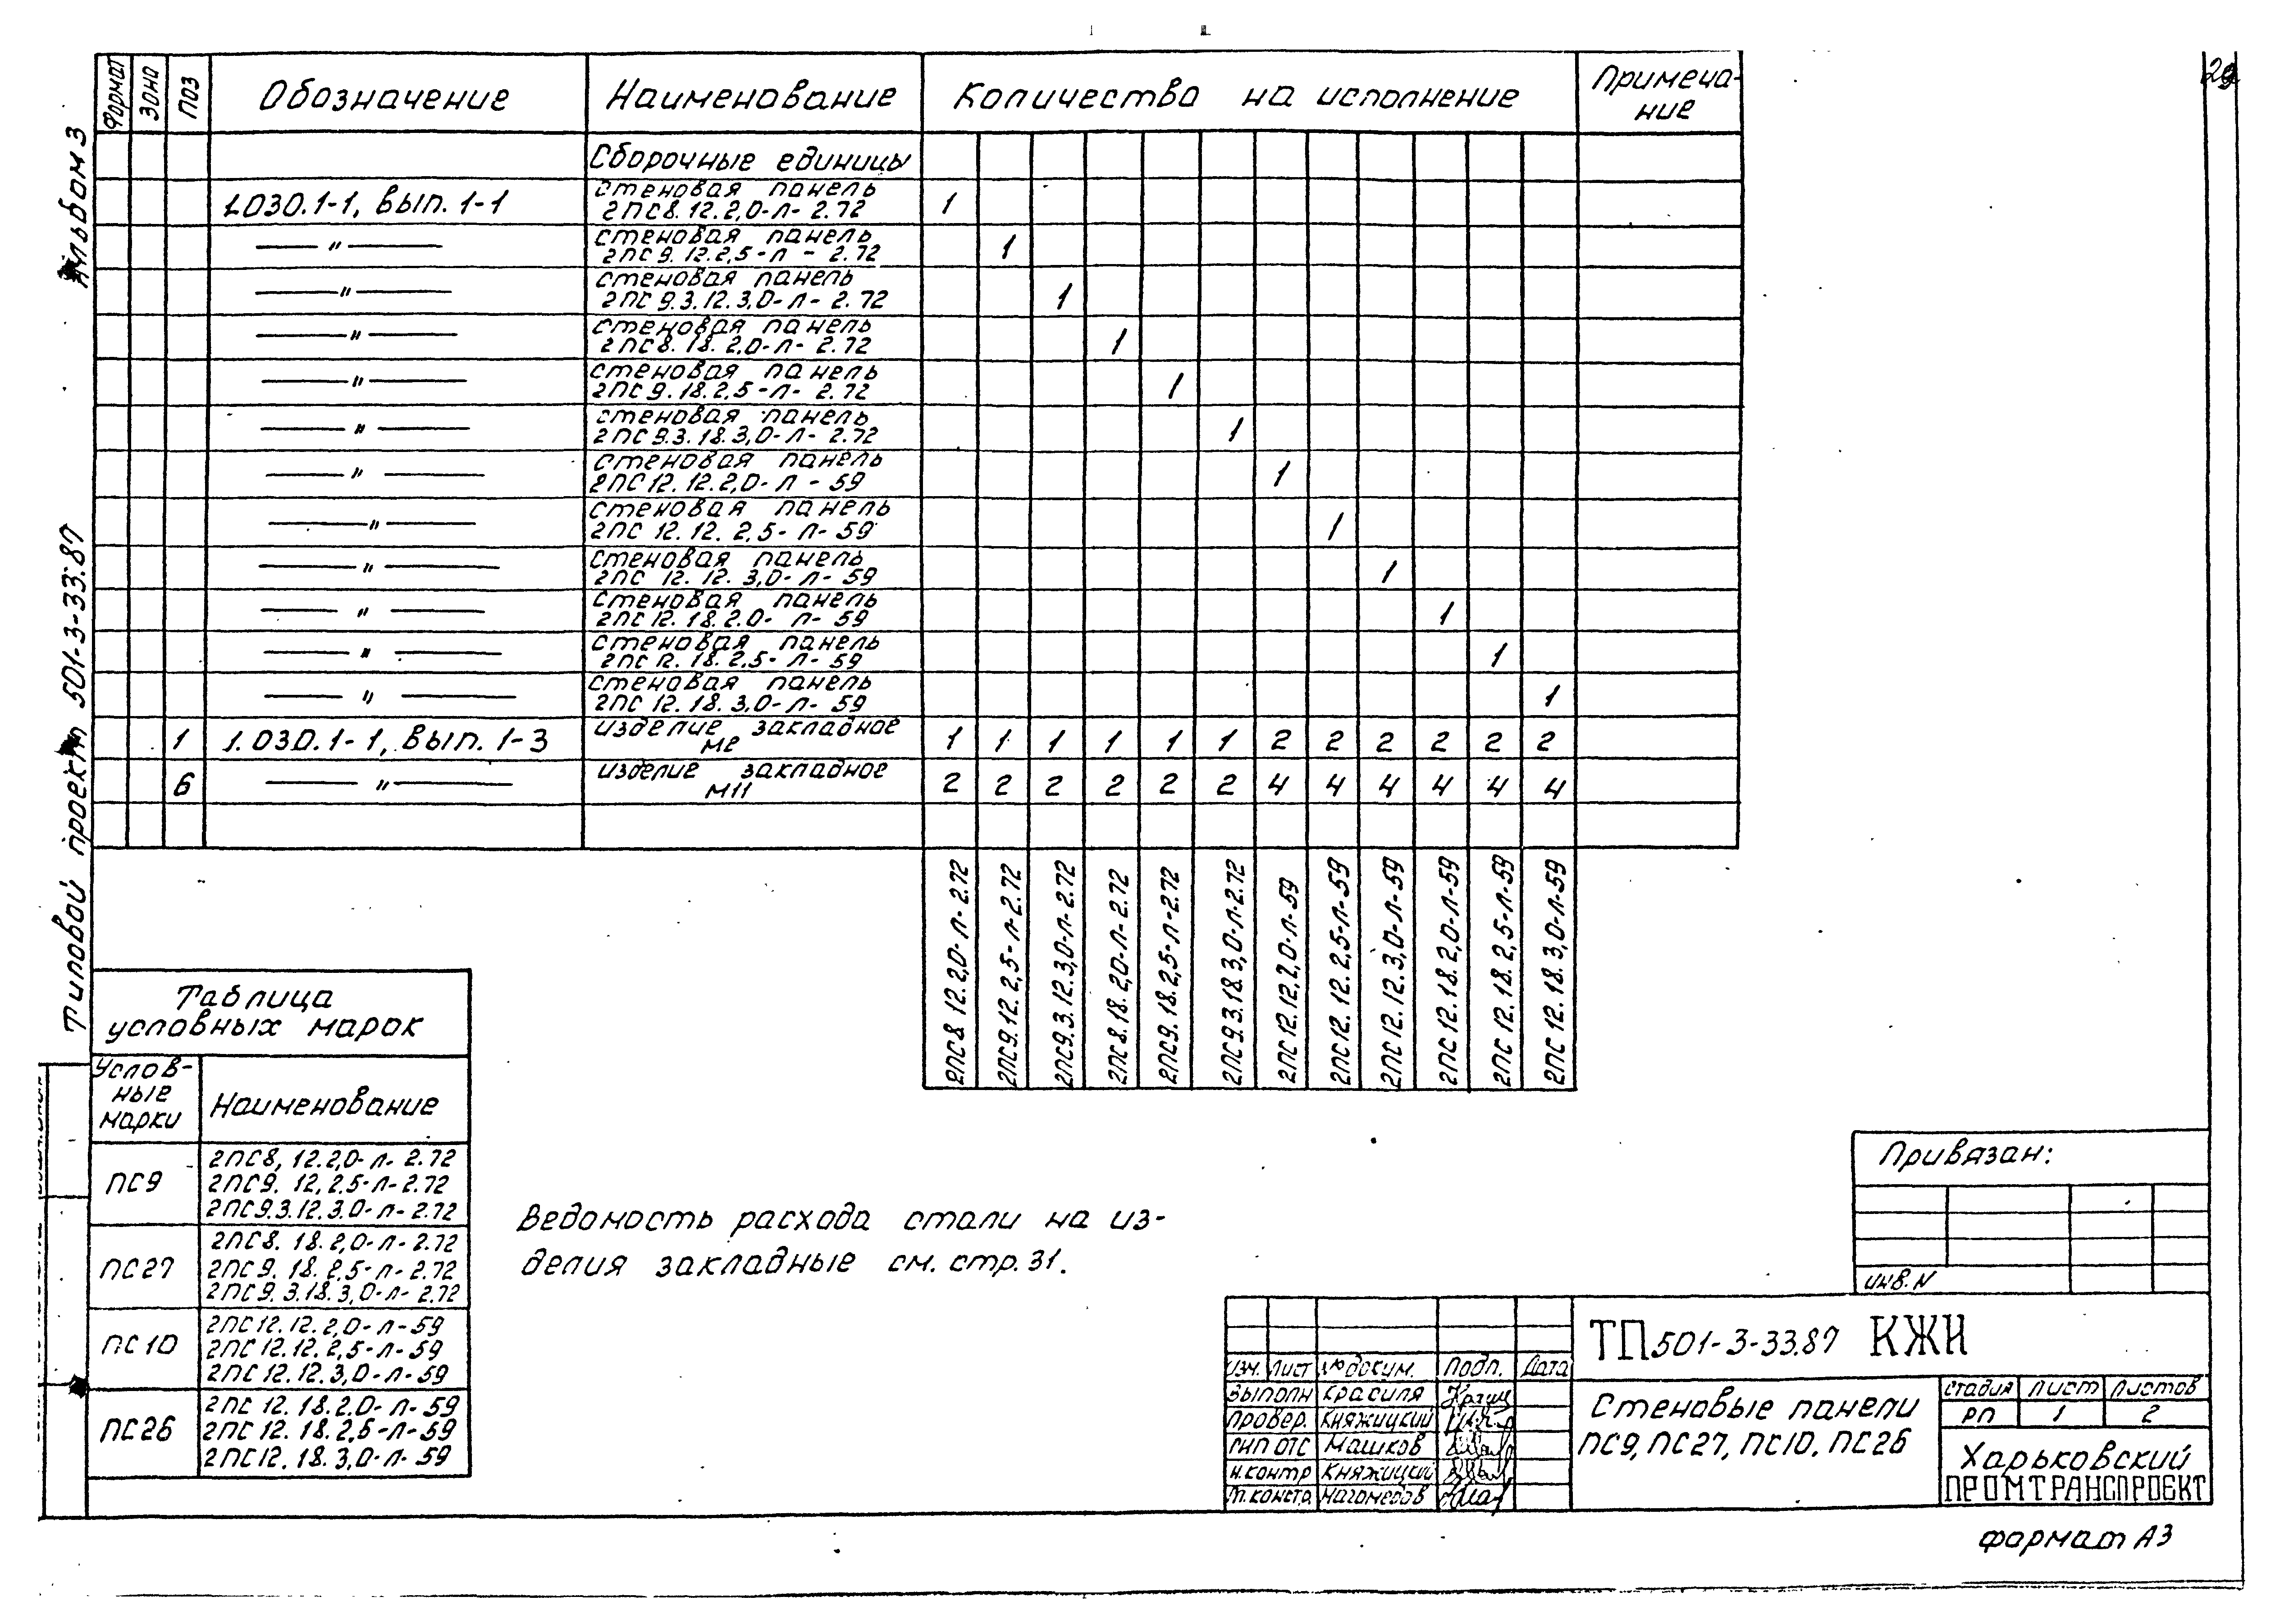 Альбом 3
Типовой проект 501-3-33.87
Формат Зона Поз Обозначение Наименование Количество на исполнение Примеча-
ние
Сборочные единицы
1.030.1-1, вып. 1-1 стеновая панель
2ПС8.12.2,0-Л-2.72 1
—"— стеновая панель
2ПС9.12.2,5-Л-2.72 1
—"— стеновая панель
2ПС9.3.12.3,0-Л-2.72 1
—"— стеновая панель
2ПС8.18.2,0-Л-2.72 1
—"— стеновая панель
2ПС9.18.2,5-Л-2.72 1
—"— стеновая панель
2ПС9.3.18.3,0-Л-2.72 1
—"— стеновая панель
2ПС12.12.2,0-Л-59 1
—"— стеновая панель
2ПС12.12.2,5-Л-59 1
—"— стеновая панель
2ПС12.12.3,0-Л-59 1
—"— стеновая панель
2ПС12.18.2.0-Л-59 1
—"— стеновая панель
2ПС12.18.2,5-Л-59 1
—"— стеновая панель
2ПС12.18.3,0-Л-59 1
1 1.030.1-1, вып. 1-3 изделие закладное
1 1 1 1 1 1 2 2 2 2 2 2
6 —"— изделие закладное
М11 2 2 2 2 2 2 4 4 4 4 4 4
2ПС8.12.2,0-Л-2.72
2ПС9.12.2,5-Л-2.72
2ПС9.3.12.3,0-Л-2.72
2ПС8.18.2,0-Л-2.72
2ПС9.18.2,5-Л-2.72
2ПС9.3.18.3,0-Л-2.72
2ПС12.12.2,0-Л-59
2ПС12.12.2,5-Л-59
2ПС12.12.3,0-Л-59
2ПС12.18.2,0-Л-59
2ПС12.18.2,5-Л-59
2ПС12.18.3,0-Л-59
Таблица
условных марок
Услов-
ные
марки Наименование
ПС9 2ПС8,12.2,0-Л-2.72
2ПС9.12,2,5-Л-2.72
2ПС9.3.12.3,0-Л-2.72
ПС27 2ПС8.18.2,0-Л-2.72
2ПС9.18.2,5-Л-2.72
2ПС9.3.18.3,0-Л-2.72
ПС10 2ПС12.12.2,0-Л-59
2ПС12.12.2,5-Л-59
2ПС12.12.3,0-Л-59
ПС26 2ПС12.18.2.0-Л-59
2ПС12.18.2,5-Л-59
2ПС12.18.3,0-Л-59
Ведомость расхода стали на из-
делия закладные см. стр. 31.
Привязан:
инв. N
ТП 501-3-33.87 КЖИ
Изм. Лист №докум. Подп. Дата
Выполн Красиля
Провер. Княжицкий
ГИП ОТС Машков
Н.контр Княжицкий
Стеновые панели
ПС9, ПС27, ПС10, ПС26
Стадия Лист Листов
РП 1 2
Харьковский
ПРОМТРАНСПРОЕКТ
Формат А3